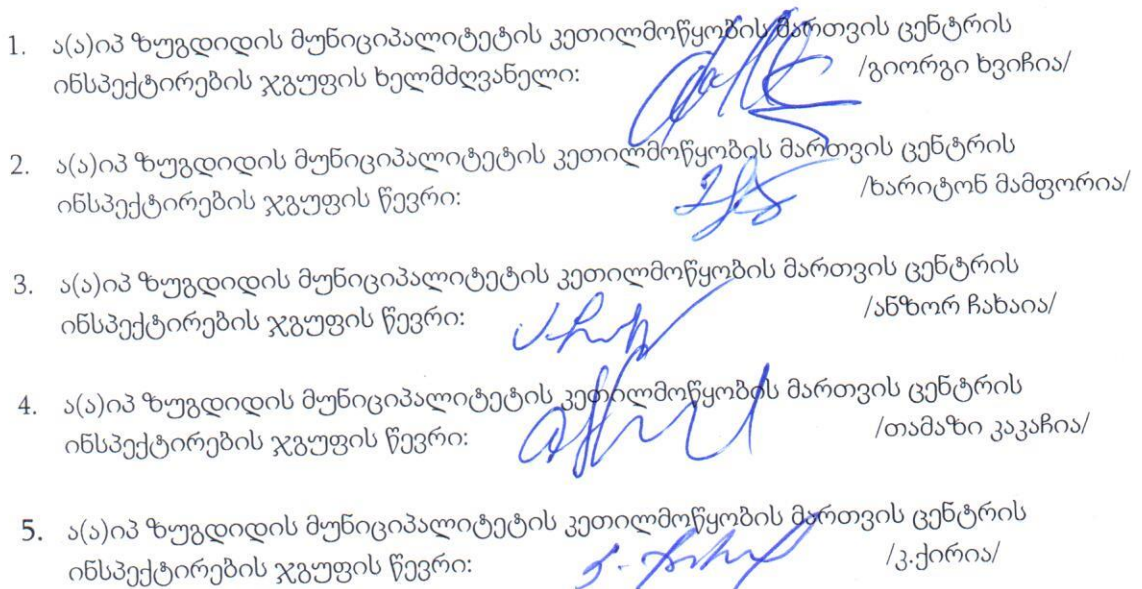 1. ა(ა)იპ ზუგდიდის მუნიციპალიტეტის კეთილმოწყობის მართვის ცენტრის
ინსპექტირების ჯგუფის ხელმძღვანელი: /გიორგი ხვიჩია/
2. ა(ა)იპ ზუგდიდის მუნიციპალიტეტის კეთილმოწყობის მართვის ცენტრის
ინსპექტირების ჯგუფის წევრი: /ხარიტონ მამფორია/
3. ა(ა)იპ ზუგდიდის მუნიციპალიტეტის კეთილმოწყობის მართვის ცენტრის
ინსპექტირების ჯგუფის წევრი: /ანზორ ჩახაია/
4. ა(ა)იპ ზუგდიდის მუნიციპალიტეტის კეთილმოწყობის მართვის ცენტრის
ინსპექტირების ჯგუფის წევრი: /თამაზი კაკაჩია/
5. ა(ა)იპ ზუგდიდის მუნიციპალიტეტის კეთილმოწყობის მართვის ცენტრის
ინსპექტირების ჯგუფის წევრი: /კ.ქირია/